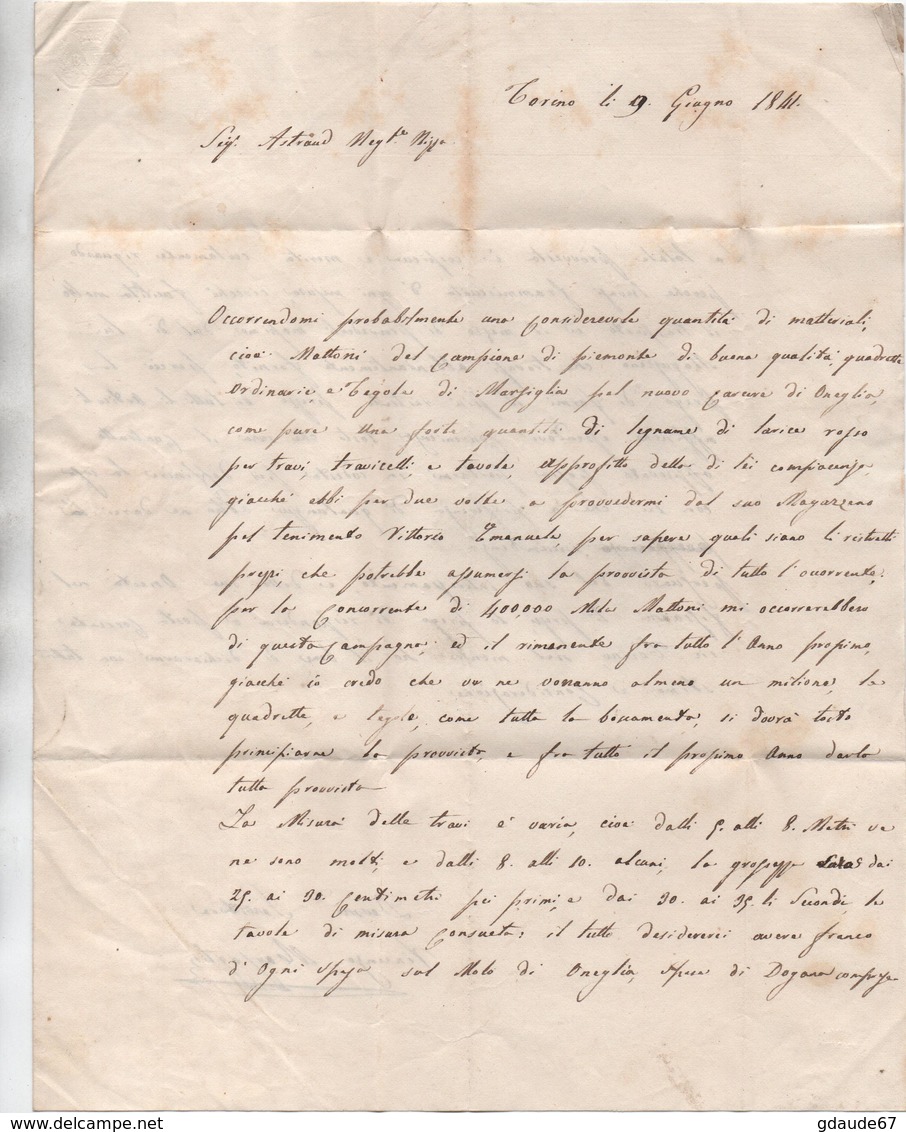 Torino li 9. Giugno 1841.
Sig.r Astraud Neg.te Nizza
Occorrendomi probabilmente una considerevole quantità di matteriali,
cioè Mattoni del Campione di piemonte di buona qualità quadrette
ordinarie, e Tegole di Marsiglia pel nuovo carcere di Oneglia,
come pure una forte quantità di legname di larice rosso
per travi, travicelli, e tavole, approfitto della di lei compiacenza,
giacchè ebbi per due volte a provvedermi dal suo Magazzeno
pel tenimento Vittorio Emanuele, per sapere quali siano li ristretti
prezzi, che potrebbe assumersi la provvista di tutto l'ocorrente,
per la Concorrente di 400,000 Mila Mattoni mi occorrerebbero
di questa Campagna, ed il rimanente fra tutto l'Anno prossimo,
giacchè io credo che ve ne vorranno almeno un milione, le
quadrette, e tegole, come tutta la boscamenta, si dovrà tosto
principiarne la provvista, e fra tutto il prossimo Anno darla
tutta provvista
La Misura delle travi è varia, cioè dalli 5. alli 8. Metri ve
ne sono molti, e dalli 8. alli 10. alcuni, la grossezza dai
25. ai 30. Centimetri pei primi, e dai 30. ai 35. li Secondi, le
tavole di misura Consueta: il tutto desidererei avere franco
d'Ogni Spesa sul Molo di Oneglia, Spesa di Dogana compresa
delcampe.net
gdaude67